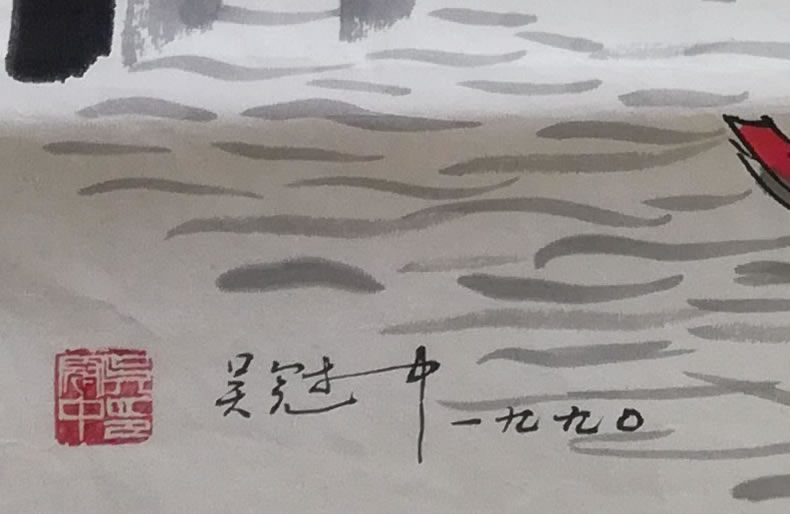 吴冠中 一九九〇
吴印
冠中